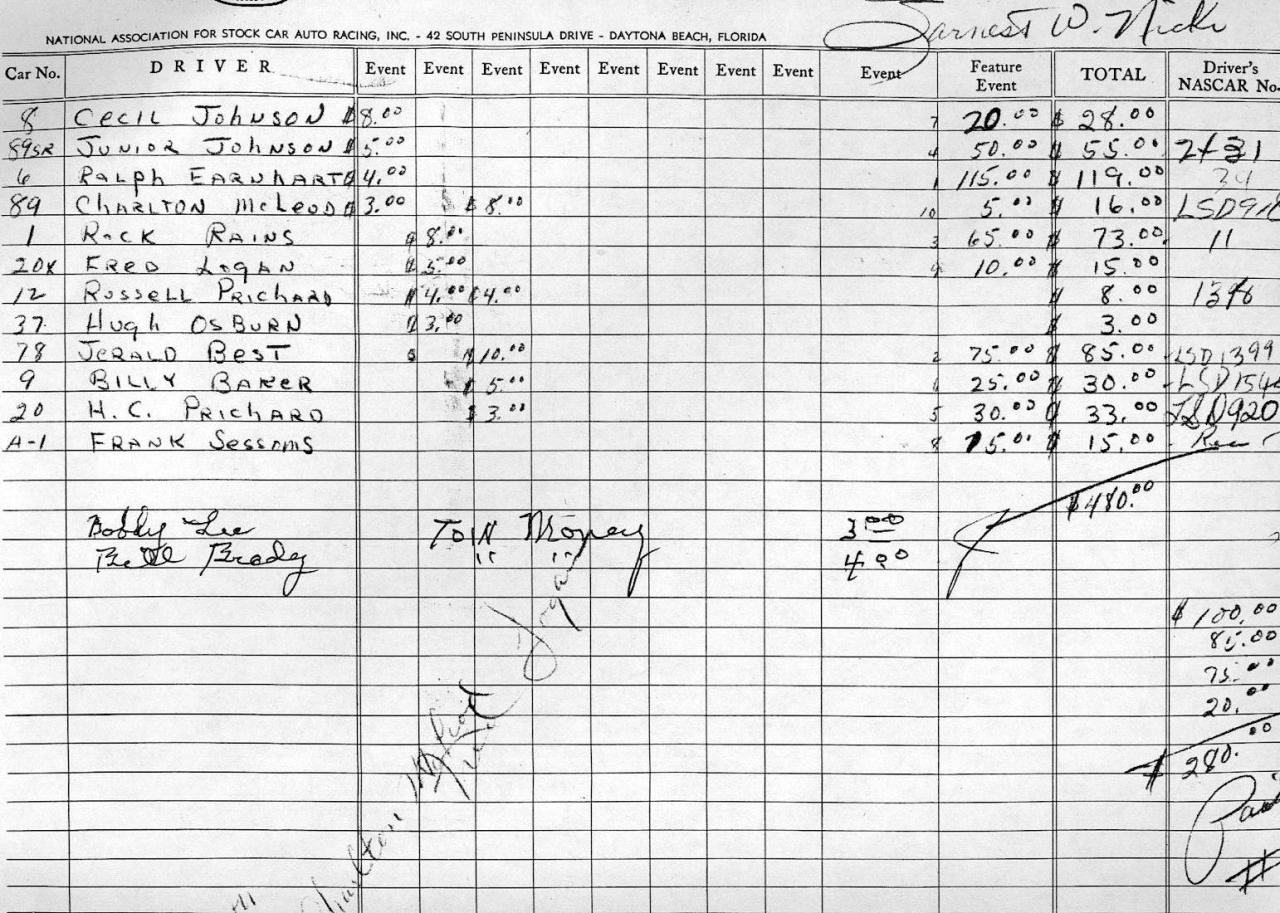 Earnest W. Nicks
NATIONAL ASSOCIATION FOR STOCK CAR AUTO RACING, INC. - 42 SOUTH PENINSULA DRIVE - DAYTONA BEACH, FLORIDA
Car No. DRIVER Event Event Event Event Event Event Event Event Event Feature Event TOTAL Driver's NASCAR No.
8 CECIL JOHNSON $8.00 7 20.00 $ 28.00
89SR JUNIOR JOHNSON $5.00 4 50.00 $ 55.00
6 RALPH EARNHART $4.00 1 115.00 $ 119.00 34
89 CHARLTON McLEOD $3.00 $8.00 10 5.00 $ 16.00
1 ROCK RAINS $8.00 3 65.00 $ 73.00 11
20X FRED LOGAN $5.00 9 10.00 $ 15.00
12 RUSSELL PRICHARD $4.00 $4.00 $ 8.00
37 Hugh OSBURN $3.00 $ 3.00
78 JERALD BEST $10.00 2 75.00 $ 85.00 LSD1399
9 BILLY BAKER $5.00 25.00 $ 30.00
20 H.C. PRICHARD $3.00 5 30.00 $ 33.00 LSD920
A-1 FRANK SESSOMS 8 15.00 $ 15.00
$480.00
Bobby Lee TOW Money 3.00
Brady " " 4.00
$ 100.00
85.00
75.00
20.00
$ 280.00
Logan